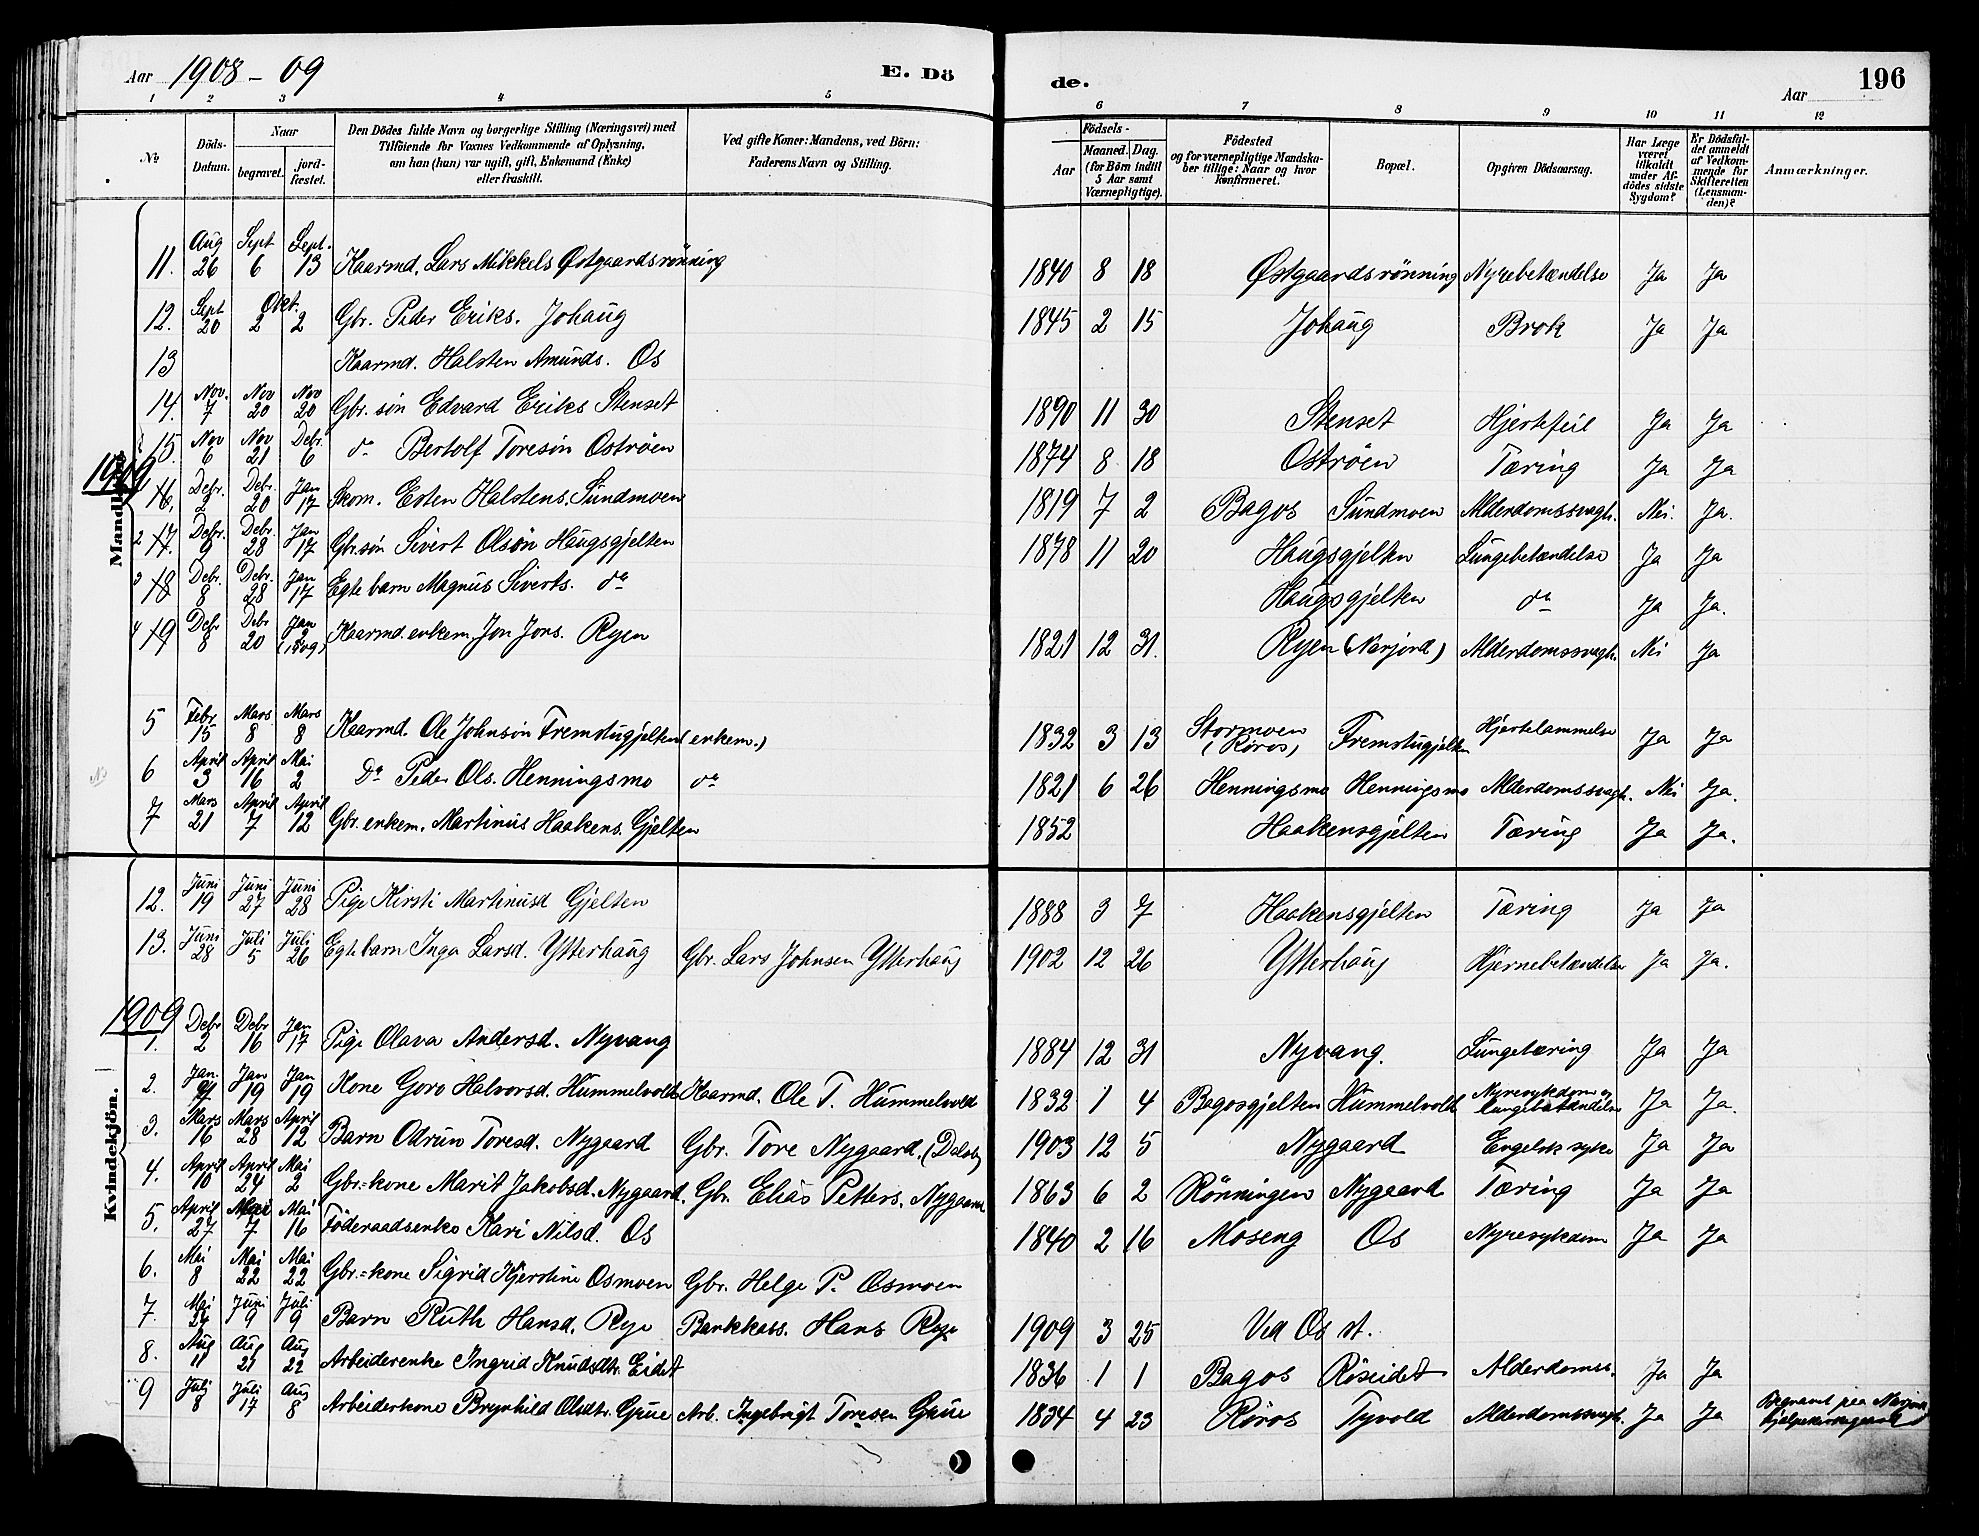 Aar 1908 - 09 E. Dö de. Aar 196
1 2 3 4 5 6 7 8 9 10 11 12
No
Döds-Datum.
Naar begravet. jord-fæstet.
Den Dödes fulde Navn og borgerlige Stilling (Næringsvei) med
Tilföiende for Voxnes Vedkommende af Oplysning,
om han (hun) var ugift, gift, Enkemand (Enke)
eller fraskilt.
Ved gifte Koner: Mandens, ved Börn:
Faderens Navn og Stilling.
Födsels-
Aar Maaned. Dag.
(for Börn indtil
5 Aar samt
Værnepligtige).
Födested
og for værnepligtige Mandska-
ber tillige: Naar og hvor
konfirmeret.
Bopæl.
Opgiven Dödsaarsag.
Har Læge
været
tilkaldt
under Af-
dödes sidste
Sygdom?
Er Dödsfal-
det anmeldt
af Vedkom-
mende for
Skifteretten
(Lensman-
den)?
Anmærkninger.
11. Aug 26 Sept 6 Sept. 13 Kaarmd. Lars Mikkels Østgaardsrönning 1840 8 18 Østgaardsrönning Nyrebetændelse Ja Ja
12. Sept 20 Okt. 2 2 Gbr. Peder Eriks. Johaug 1845 2 15 Johaug Brok Ja Ja
13 Kaarmd. Halsten Amunds. Os
14. Nov. 7 Nov 20 Nov 20 Gbr. sön Edvard Eriks Stenset 1890 11 30 Stenset Hjertefeil Ja Ja
15. Nov 6 Nov 21 Debr. 6 do Bertolf Toresön Oströen 1874 8 18 Oströen Tæring Ja Ja
1909
Mandkjön.
16. Debr. 2 Debr. 20 Jan 17 Skom. Esten Halstens. Sundmoen 1819 7 2 Bagos Sundmoen Alderdomssvagh. Nei. Ja.
2 17. Debr. 9 Debr. 28 Jan 17 Gbr.sön Sivert Olsön Haugsgjelten 1878 11 20 Haugsgjelten Lungebetændelse Ja Ja
3 18 Debr. 8 Debr. 28 Jan 17 Egte barn Magnus Siverts. do Haugsgjelten do Ja Ja.
4 19 Debr 8 Debr 20 Jan 2 (1909) Kaarmd. enkem. Jon Jons. Ryen 1821 12 31. Ryen (Narjord) Alderdomssvagh. Nei Ja
5 Febr. 15 Mars 8 Mars 8 Kaarmd. Ole Johnsön Fremstugjelten (enkem.) 1832 3 13 Stormoen (Röros) Fremstugjelten Hjertelammelse Ja Ja
6 April 3 April 16 Mai 2 Do Peder Ols. Henningsmo do 1821 6 26 Henningsmo Henningsmo Alderdomssvagh. Nei Ja.
7 Mars 21 April 7 April 12 Gbr. enkem. Martinus Haakens. Gjelten 1852 Haakensgjelten Tæring Ja Ja.
12. Juni 19 Juni 27 Juni 28 Pige Kirsti Martinusd Gjelten 1888 3 7 Haakensgjelten Tæring Ja Ja
13. Juni 28 Juli 5 Juli 26 Egte barn Inga Larsd. Ytterhaug Gbr. Lars Johnsen Ytterhaug 1902 12 26 Ytterhaug Hjernebetændelse Ja Ja.
1909
Kvindekjön.
1. Debr 2 Debr 16 Jan 17 Pige Olava Andersd. Nyvang 1884 12 31 Nyvang. Lungetæring Ja Ja
2. Jan. Jan 19 Jan 19 Kone Goro Halvorsd. Hummelvold Kaarmd. Ole T. Hummelvold 1832 1 4 Bagosgjelten Hummelvold Nyresykdom og lungebetændelse Ja Ja.
3. Mars 16 Mars 28 April 12 Barn Odrun Toresd. Nygaard Gbr. Tore Nygaard. 1903 12 5 Nygaard Engelsk syke Ja Ja
4. April 10 April 24 Mai 2 Gbr.=kone Marit Jakobsd. Nygaard. Gbr. Elias Petters. Nygaard 1863 6 2 Rönningen Nygaard Tæring Ja Ja
5. April 27 Mai 7 Mai 16 Föderaadsenke Kari Nilsd. Os 1840 2 16 Moseng Os Nyresykdom Ja Ja
6. Mai 8 Mai 22 Mai 22 Gbr.=kone Sigrid Kjerstine Osmoen Gbr. Helge P. Osmoen
7. Mai 24 Juni 9 Juli 9 Barn Ruth Hansd. Rye Bankkass. Hans Rye 1909 3 25 Ved Os st.
8. Aug 11 Aug 21 Aug 22 Arbeiderenke Ingrid Knudsdtr. Eidet 1836 1 1 Bagos Röseidet Alderdomss. Ja Ja
9 Juli 8 Juli 17 Aug 8 Arbeiderkone Brynhild Olsdtr. Grue Arb. Ingebrigt Toresen Grue 1834 4 23 Röros Tyvold Alderdomssvagh. Ja Ja Begravet paa